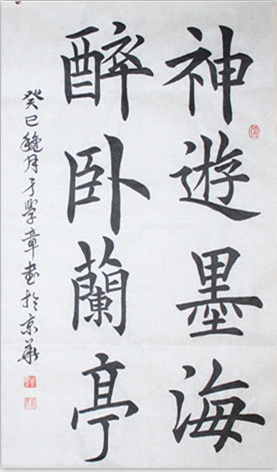 神遊墨海
醉卧蘭亭
癸巳穐月于學章書於京華